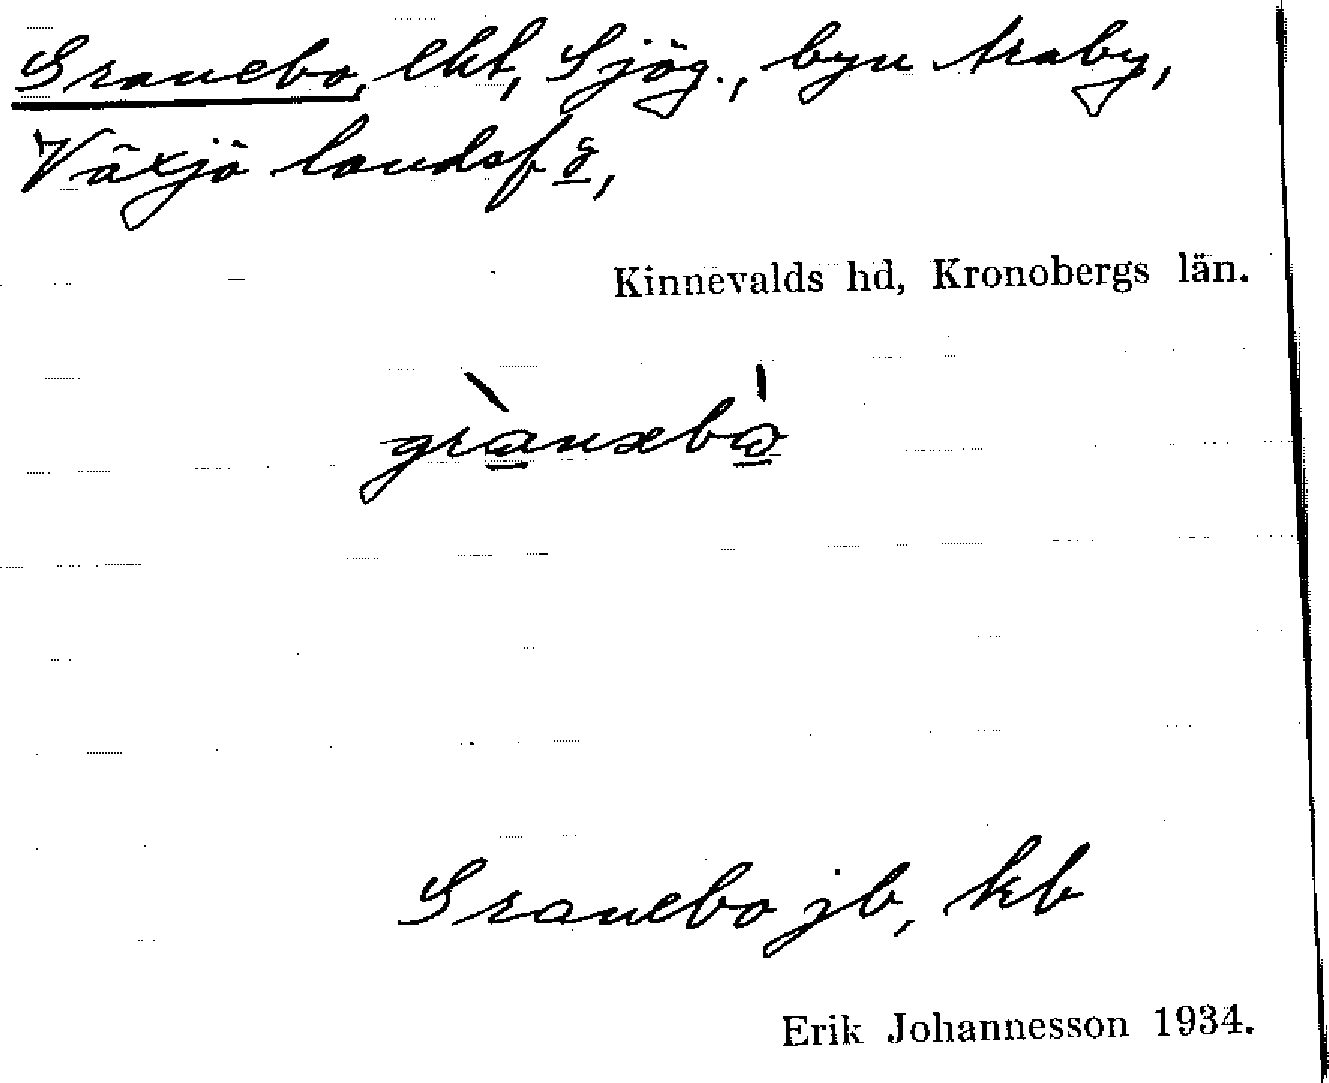 Granebo, lht, Sjög., byn Araby,
Växjö landsf s̊,
Kinnevalds hd, Kronobergs län.
grànəbò
Granebo jb, kb
Erik Johannesson 1934.